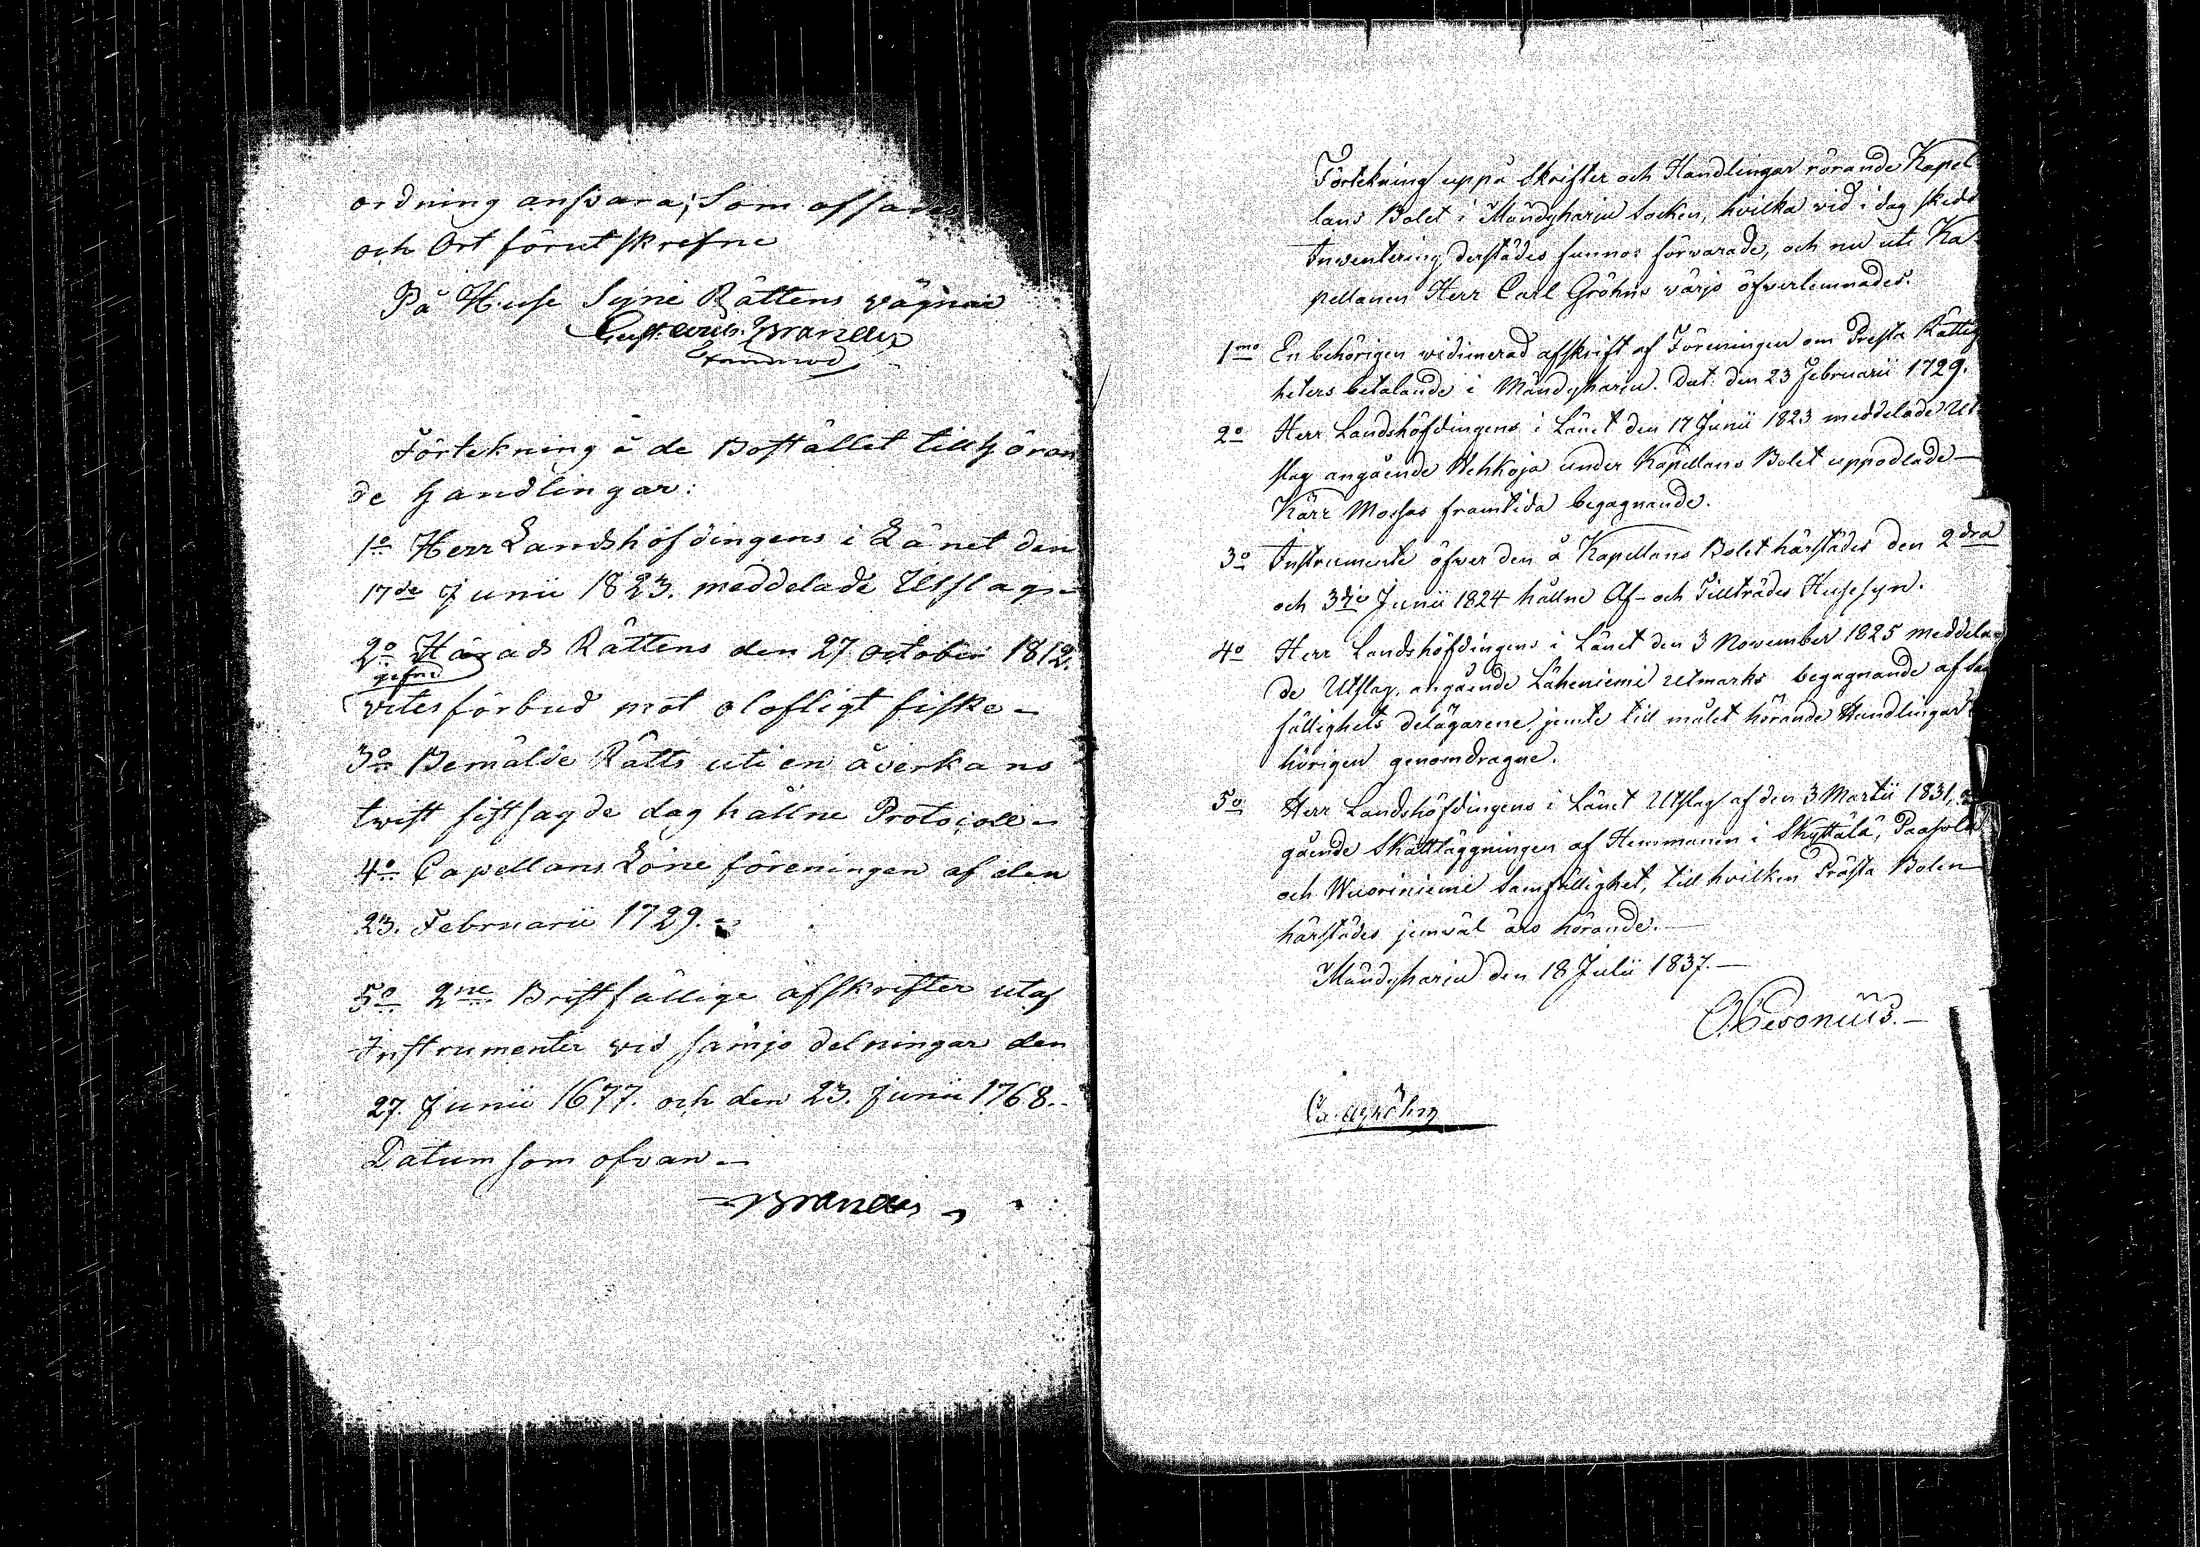 ordning ansvara; Som afsades
och Ort förut skrefne
På Huse Syne Rättens vägnar
Gust. Brander
Förtekning å de Bostället tillhöran
de handlingar:
1o Herr Landshöfdingens i Länet den
17de Junii 1823. meddelade Utslag.
2o Härads Rättens den 27 October 1812.
gefne
vites förbud mot olofligt fiske
3o Bemälde Rätts uti en åverkans
twist sistsagde dag hållne Protocoll
4o Capellans Löne föreningen af den
23. Februarii 1729.
5o 2ne Bristfällige afskrifter utaf
Instrumenter vid sämjo delningar den
27. Junii 1677. och den 23. Junii 1768.
Datum som ofvan
Brander
Förtekning uppå Skrifter och Handlingar rörande Kapel
lans Bolet i Mändyharju Socken, hvilka vid i dag skedd
Inventering derstädes funnos förvarade, och nu uti Ka-
pellanen Herr Carl Gröhns värjo öfverlemnades.
1mo En behörigen vidimerad afskrift af Föreningen om Presta Rättig
heters betalande i Mändyharju. Dat: den 23 Februarii 1729.
2o Herr Landshöfdingens i Länet den 17 Junii 1823 meddelade Ut
slag angående Wehkoja under Kapellans Bolet uppodlade
Kärr Mossas framtida begagnande.
3o Instrumente öfver den å Kapellans Bolet härstädes den 2dra
och 3dje Junii 1824 hållne Af- och Tillträdes Husesyn.
4o Herr Landshöfdingens i Länet den 3 November 1825 meddela-
de Utslag, angående Laheniemi utmarks begagnande af Sam
fällighets delägarene jemte till målet hörande Handlingar
hörigen genomdragne.
5o Herr Landshöfdingens i Länet Utslag af den 3 Martii 1831, an
gående Skattläggningen af Hemmanen i Skyttälä, Paasola
och Wuoriniemi Samfällighet, till hvilken Prästa Bolen
härstädes jemväl äro hörande.
Mändyharju den 18 Julii 1837.
Ca: Gröhn